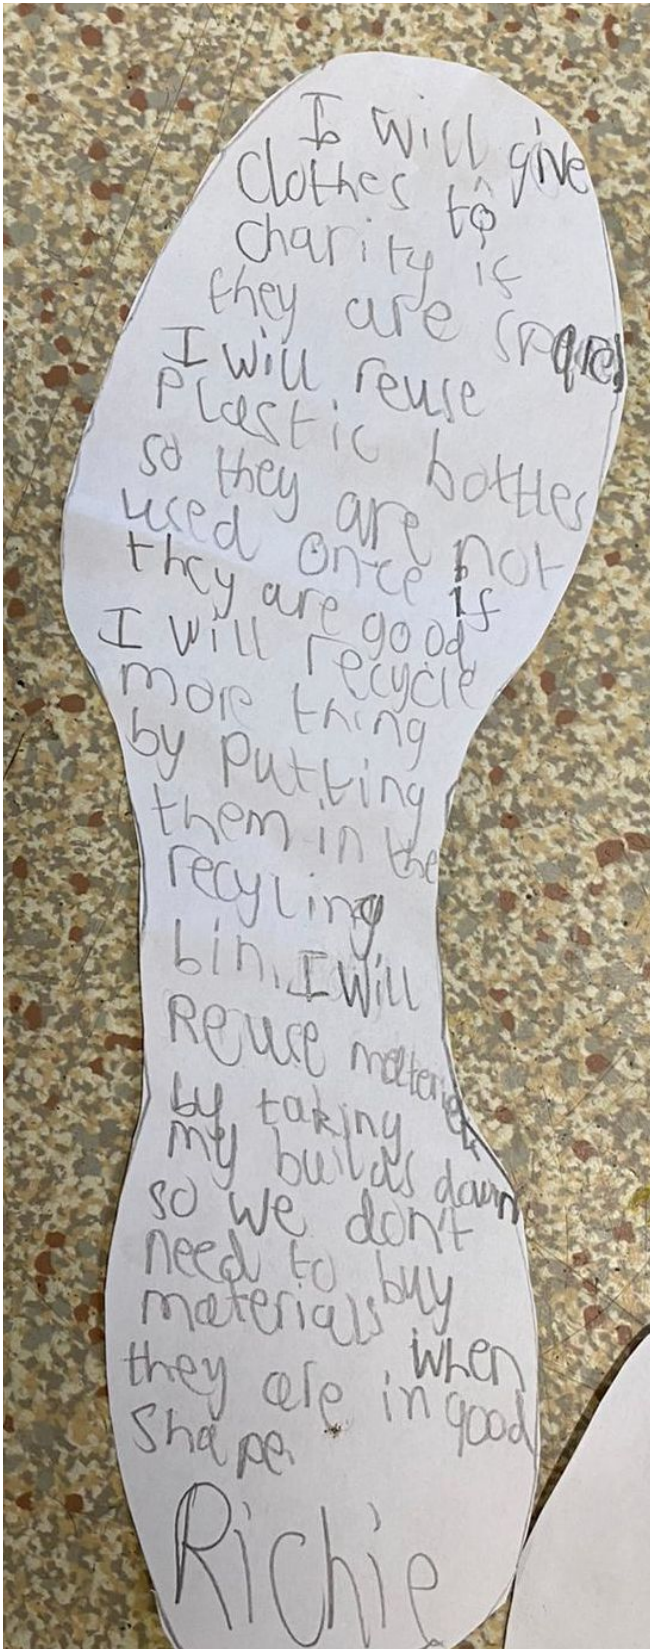 I will give
Clothes to
charity if
they are spare
I will reuse
Plastic bottles
so they are not
used once if
they are good
I will recycle
more thing
by putting
them in the
recyling
bin. I will
Reuse materials
by taking
my builds down
so we don't
need to buy
materials when
they are in good
shape.
Richie